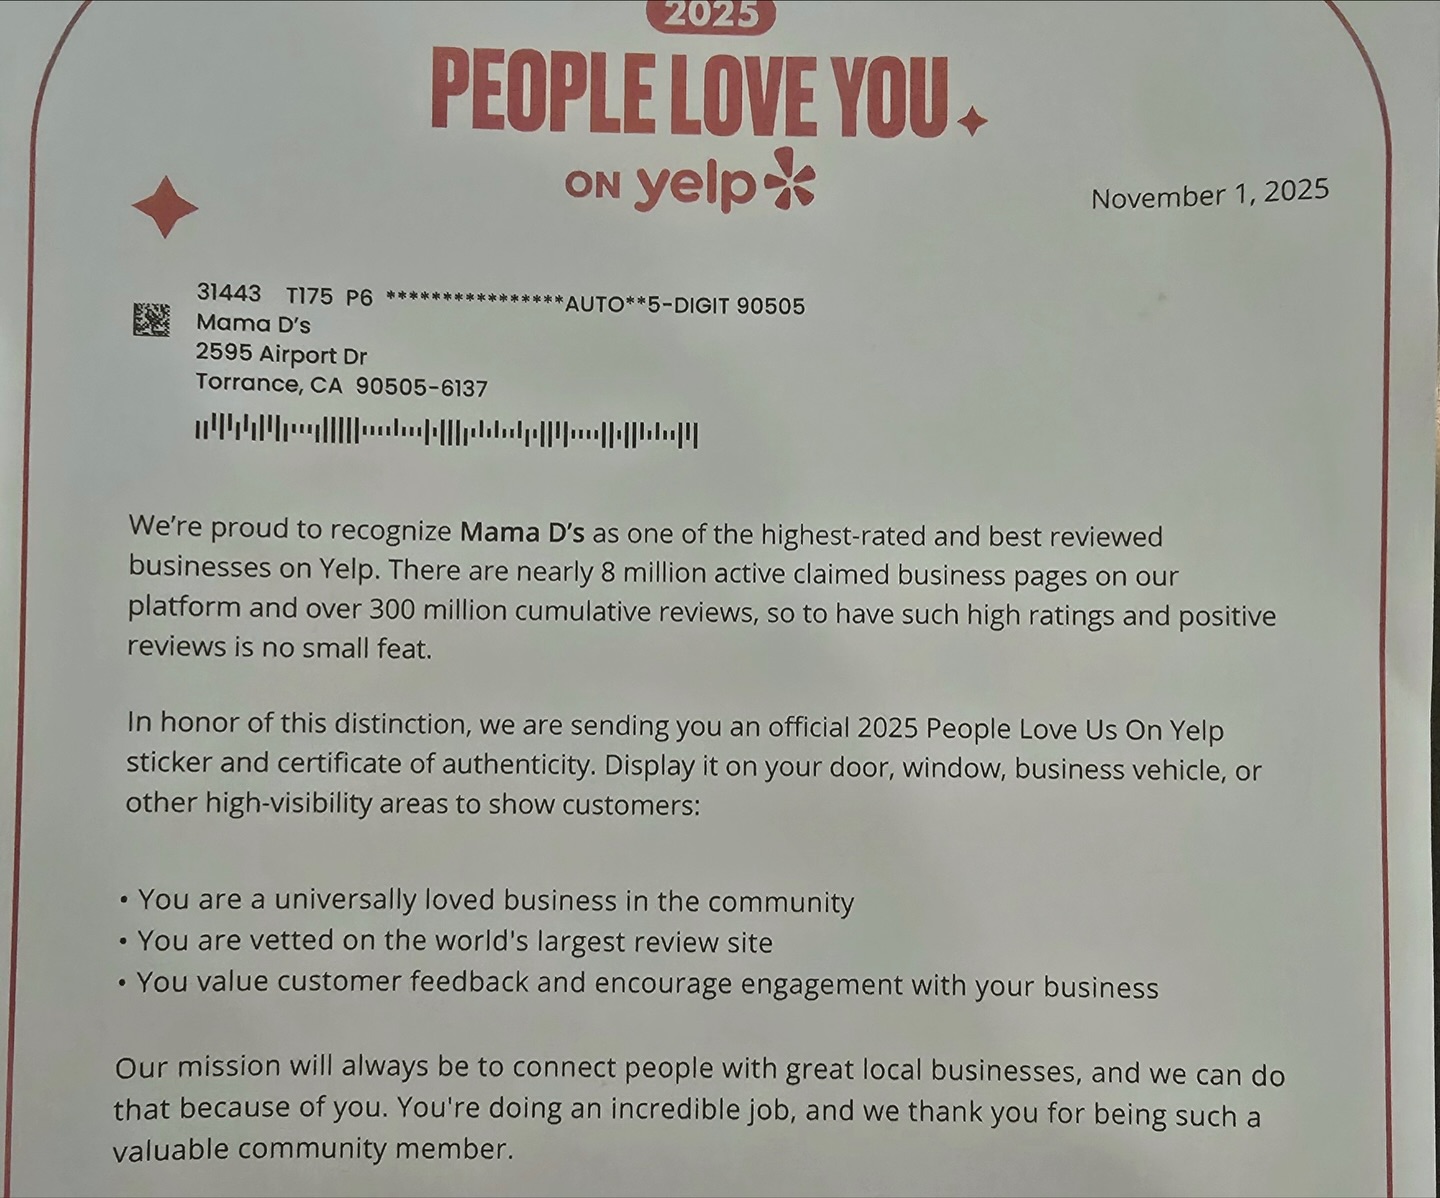 2025
PEOPLE LOVE YOU
ON yelp
November 1, 2025
31443 T175 P6 ****************AUTO**5-DIGIT 90505
Mama D's
2595 Airport Dr
Torrance, CA 90505-6137
We're proud to recognize Mama D's as one of the highest-rated and best reviewed
businesses on Yelp. There are nearly 8 million active claimed business pages on our
platform and over 300 million cumulative reviews, so to have such high ratings and positive
reviews is no small feat.
In honor of this distinction, we are sending you an official 2025 People Love Us On Yelp
sticker and certificate of authenticity. Display it on your door, window, business vehicle, or
other high-visibility areas to show customers:
• You are a universally loved business in the community
• You are vetted on the world's largest review site
• You value customer feedback and encourage engagement with your business
Our mission will always be to connect people with great local businesses, and we can do
that because of you. You're doing an incredible job, and we thank you for being such a
valuable community member.